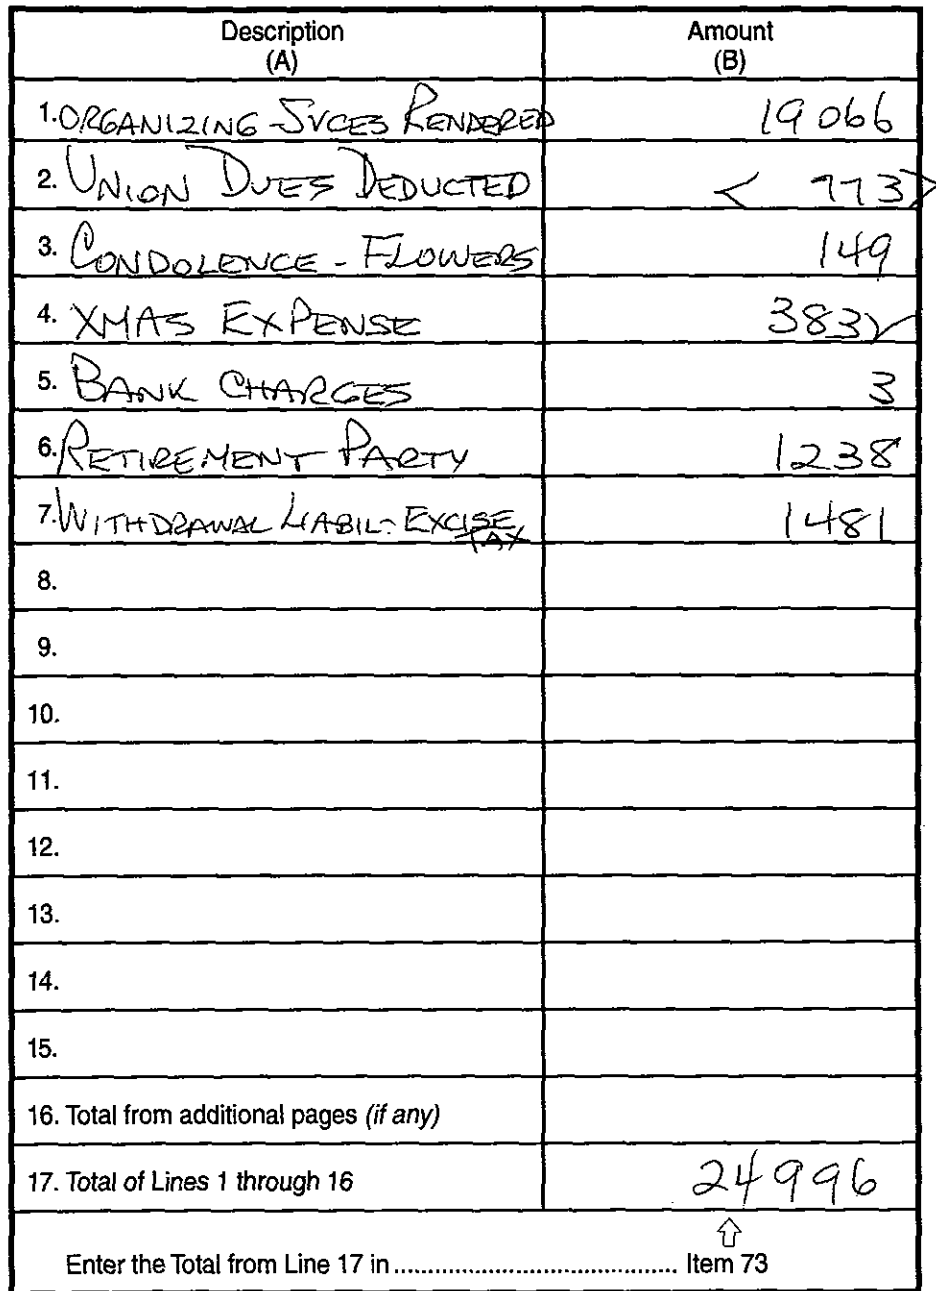 Description
(A)
Amount
(B)
1. ORGANIZING - SVCES RENDERED 19 066
2. UNION DUES DEDUCTED < 773>
3. CONDOLENCE - FLOWERS 149
4. XMAS EXPENSE 3832
5. BANK CHARGES 3
6. RETIREMENT PARTY 1238
7. WITHDRAWAL LIABIL - EXCISE 1481
TAX
8.
9.
10.
11.
12.
13.
14.
15.
16. Total from additional pages (if any)
17. Total of Lines 1 through 16 24996
Enter the Total from Line 17 in .......................................... Item 73